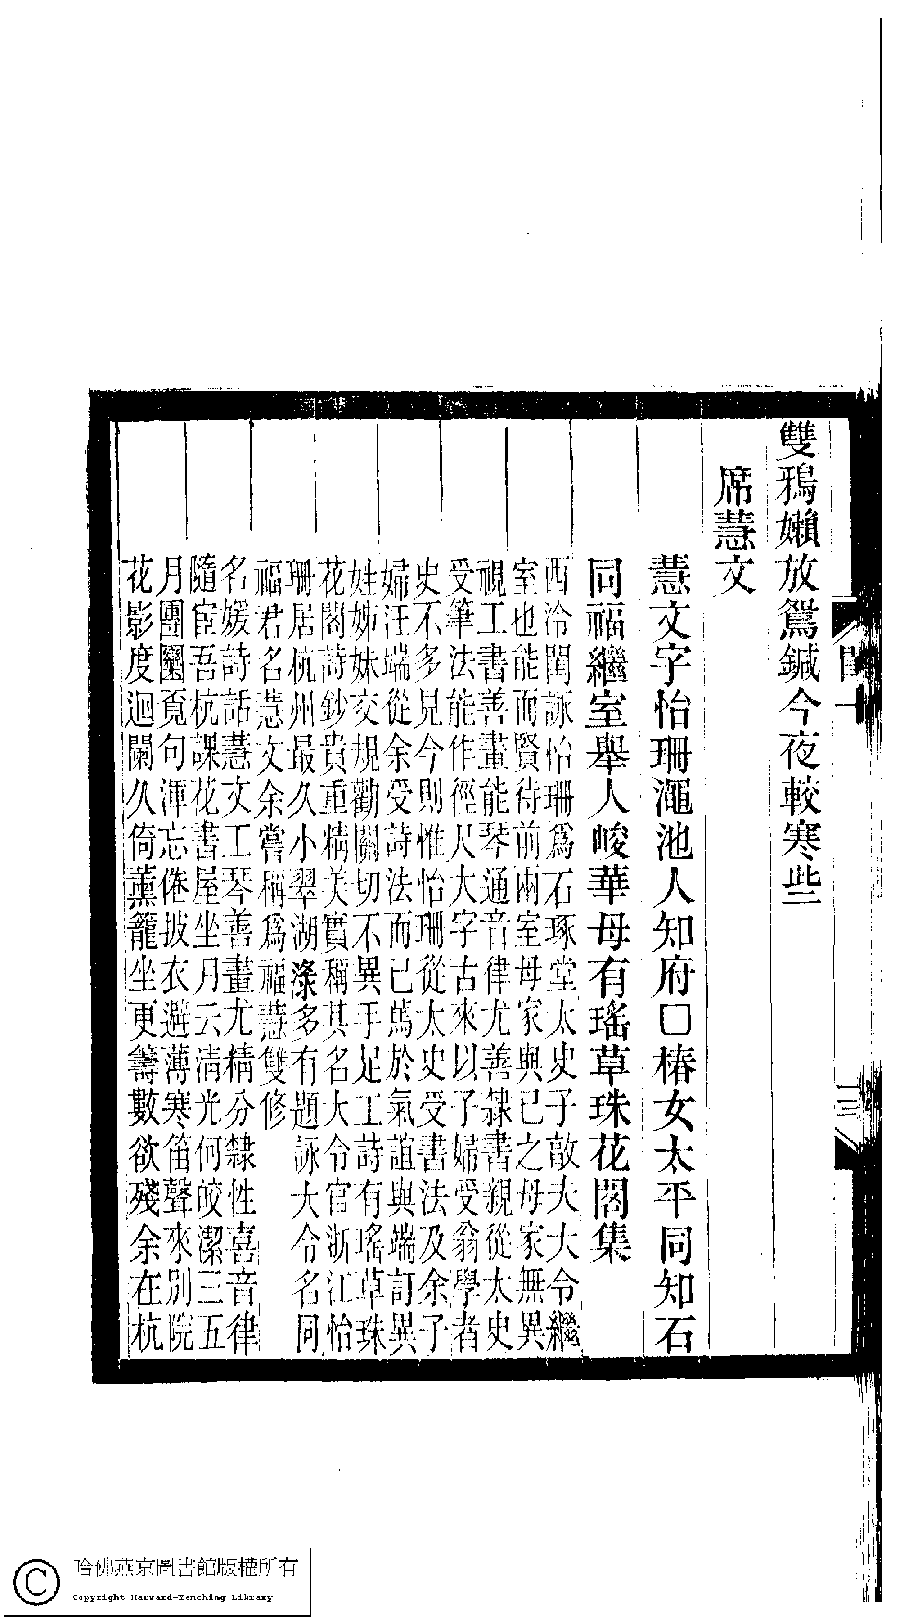 雙鴉嬾放鴛鍼今夜較寒些
席慧文
慧文字怡珊澠池人知府□椿女太平同知石
同福繼室舉人峻華母有瑤草珠花閣集
西泠閨詠怡珊爲石琢堂太史子敵夫大令繼
室也能而賢待前兩室母家與已之母家無異
視工書善畫能琴通音律尤善隸書親從太史
受筆法能作徑尺大字古來以子婦受翁學者
史不多見今則惟怡珊從太史受書法及余子
婦汪端從余受詩法而已蔦於氣誼與端訂異
姓姊妹交規勸關切不異手足工詩有瑤草珠
花閣詩鈔貴重精美實稱其名大令官浙江怡
珊居杭州最久小翠湖滁多有題詠大令名同
福君名慧文余嘗稱爲福慧雙修
名媛詩話慧文工琴善畫尤精分隸性喜音律
隨宦吾杭課花書屋坐月云清光何皎潔三五
月團圞覓句渾忘倦披衣避薄寒笛聲來別院
花影度迴闌久倚薰籠坐更籌數欲殘余在杭
閨十
三
哈佛燕京圖書館版權所有
Copyright Harvard-Yenching Library